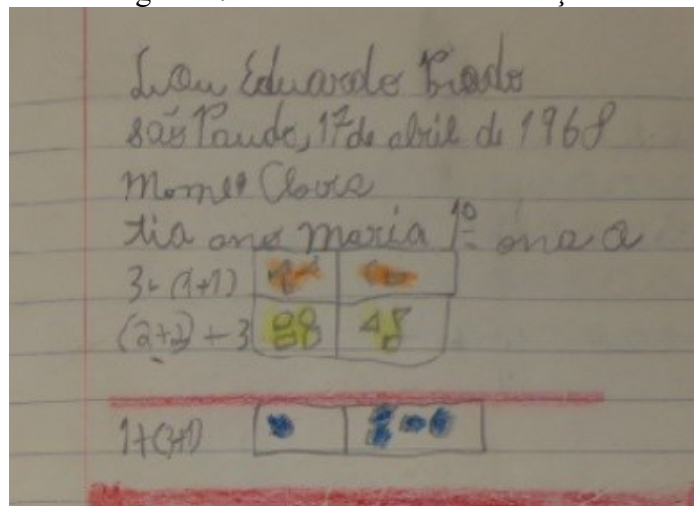 Eduardo Prado
são Paudo, 17 de abril de 1968
Clovis
tia ana maria 1º ano a
3+(1+1)
(2+2)+3
1+(3+1)